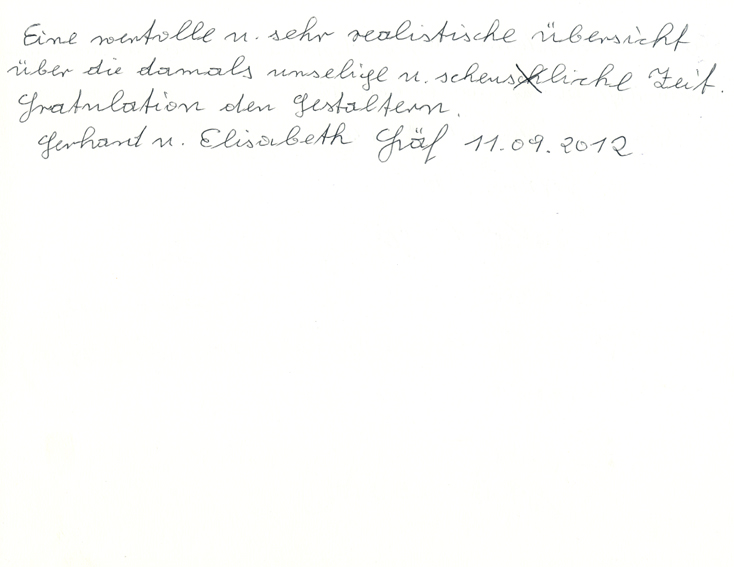 Eine wertvolle u. sehr realistische Übersicht
über die damals unselige u. scheusliche Zeit.
Gratulation den Gestaltern.
Gerhard u. Elisabeth Gräf 11.09.2012